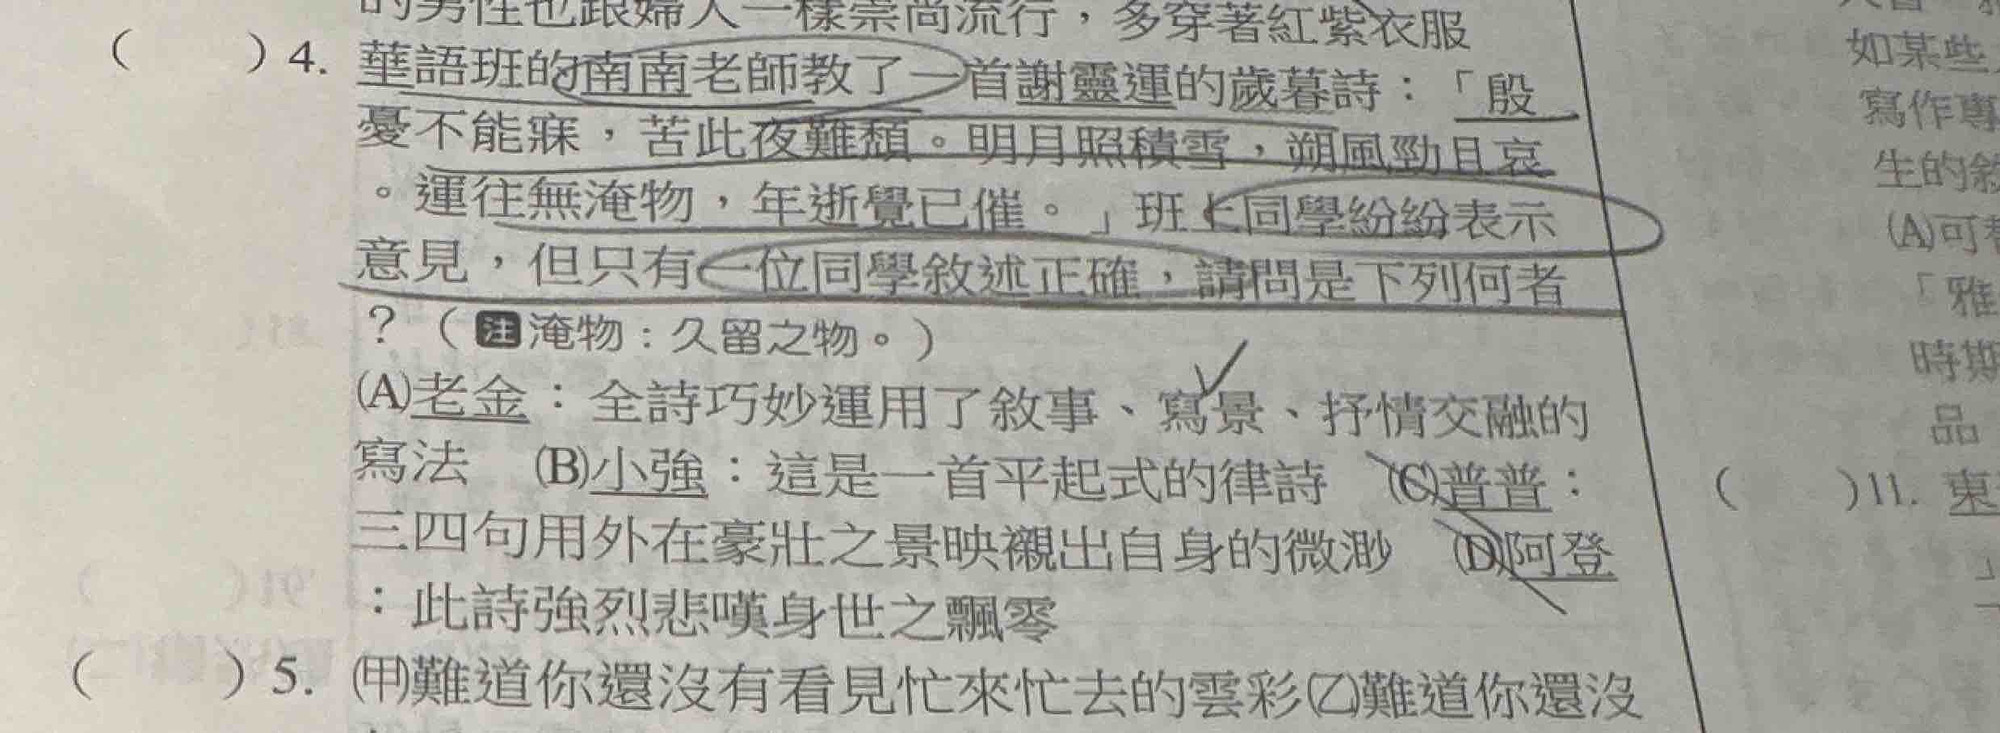 的男性也跟婦人一樣崇尚流行，多穿著紅紫衣服
（　　）4. 華語班的南南老師教了一首謝靈運的歲暮詩：「殷
憂不能寐，苦此夜難頹。明月照積雪，朔風勁且哀
。運往無淹物，年逝覺已催。」班上同學紛紛表示
意見，但只有一位同學敘述正確，請問是下列何者
？（注淹物：久留之物。）
(A)老金：全詩巧妙運用了敘事、寫景、抒情交融的
寫法　(B)小強：這是一首平起式的律詩　(C)普普：
三四句用外在豪壯之景映襯出自身的微渺　(D)阿登
：此詩強烈悲嘆身世之飄零
（　　）5. (甲)難道你還沒有看見忙來忙去的雲彩(乙)難道你還沒
如某些
寫作專
生的敘
(A)可
「雅
時期
品
（　　）11. 東